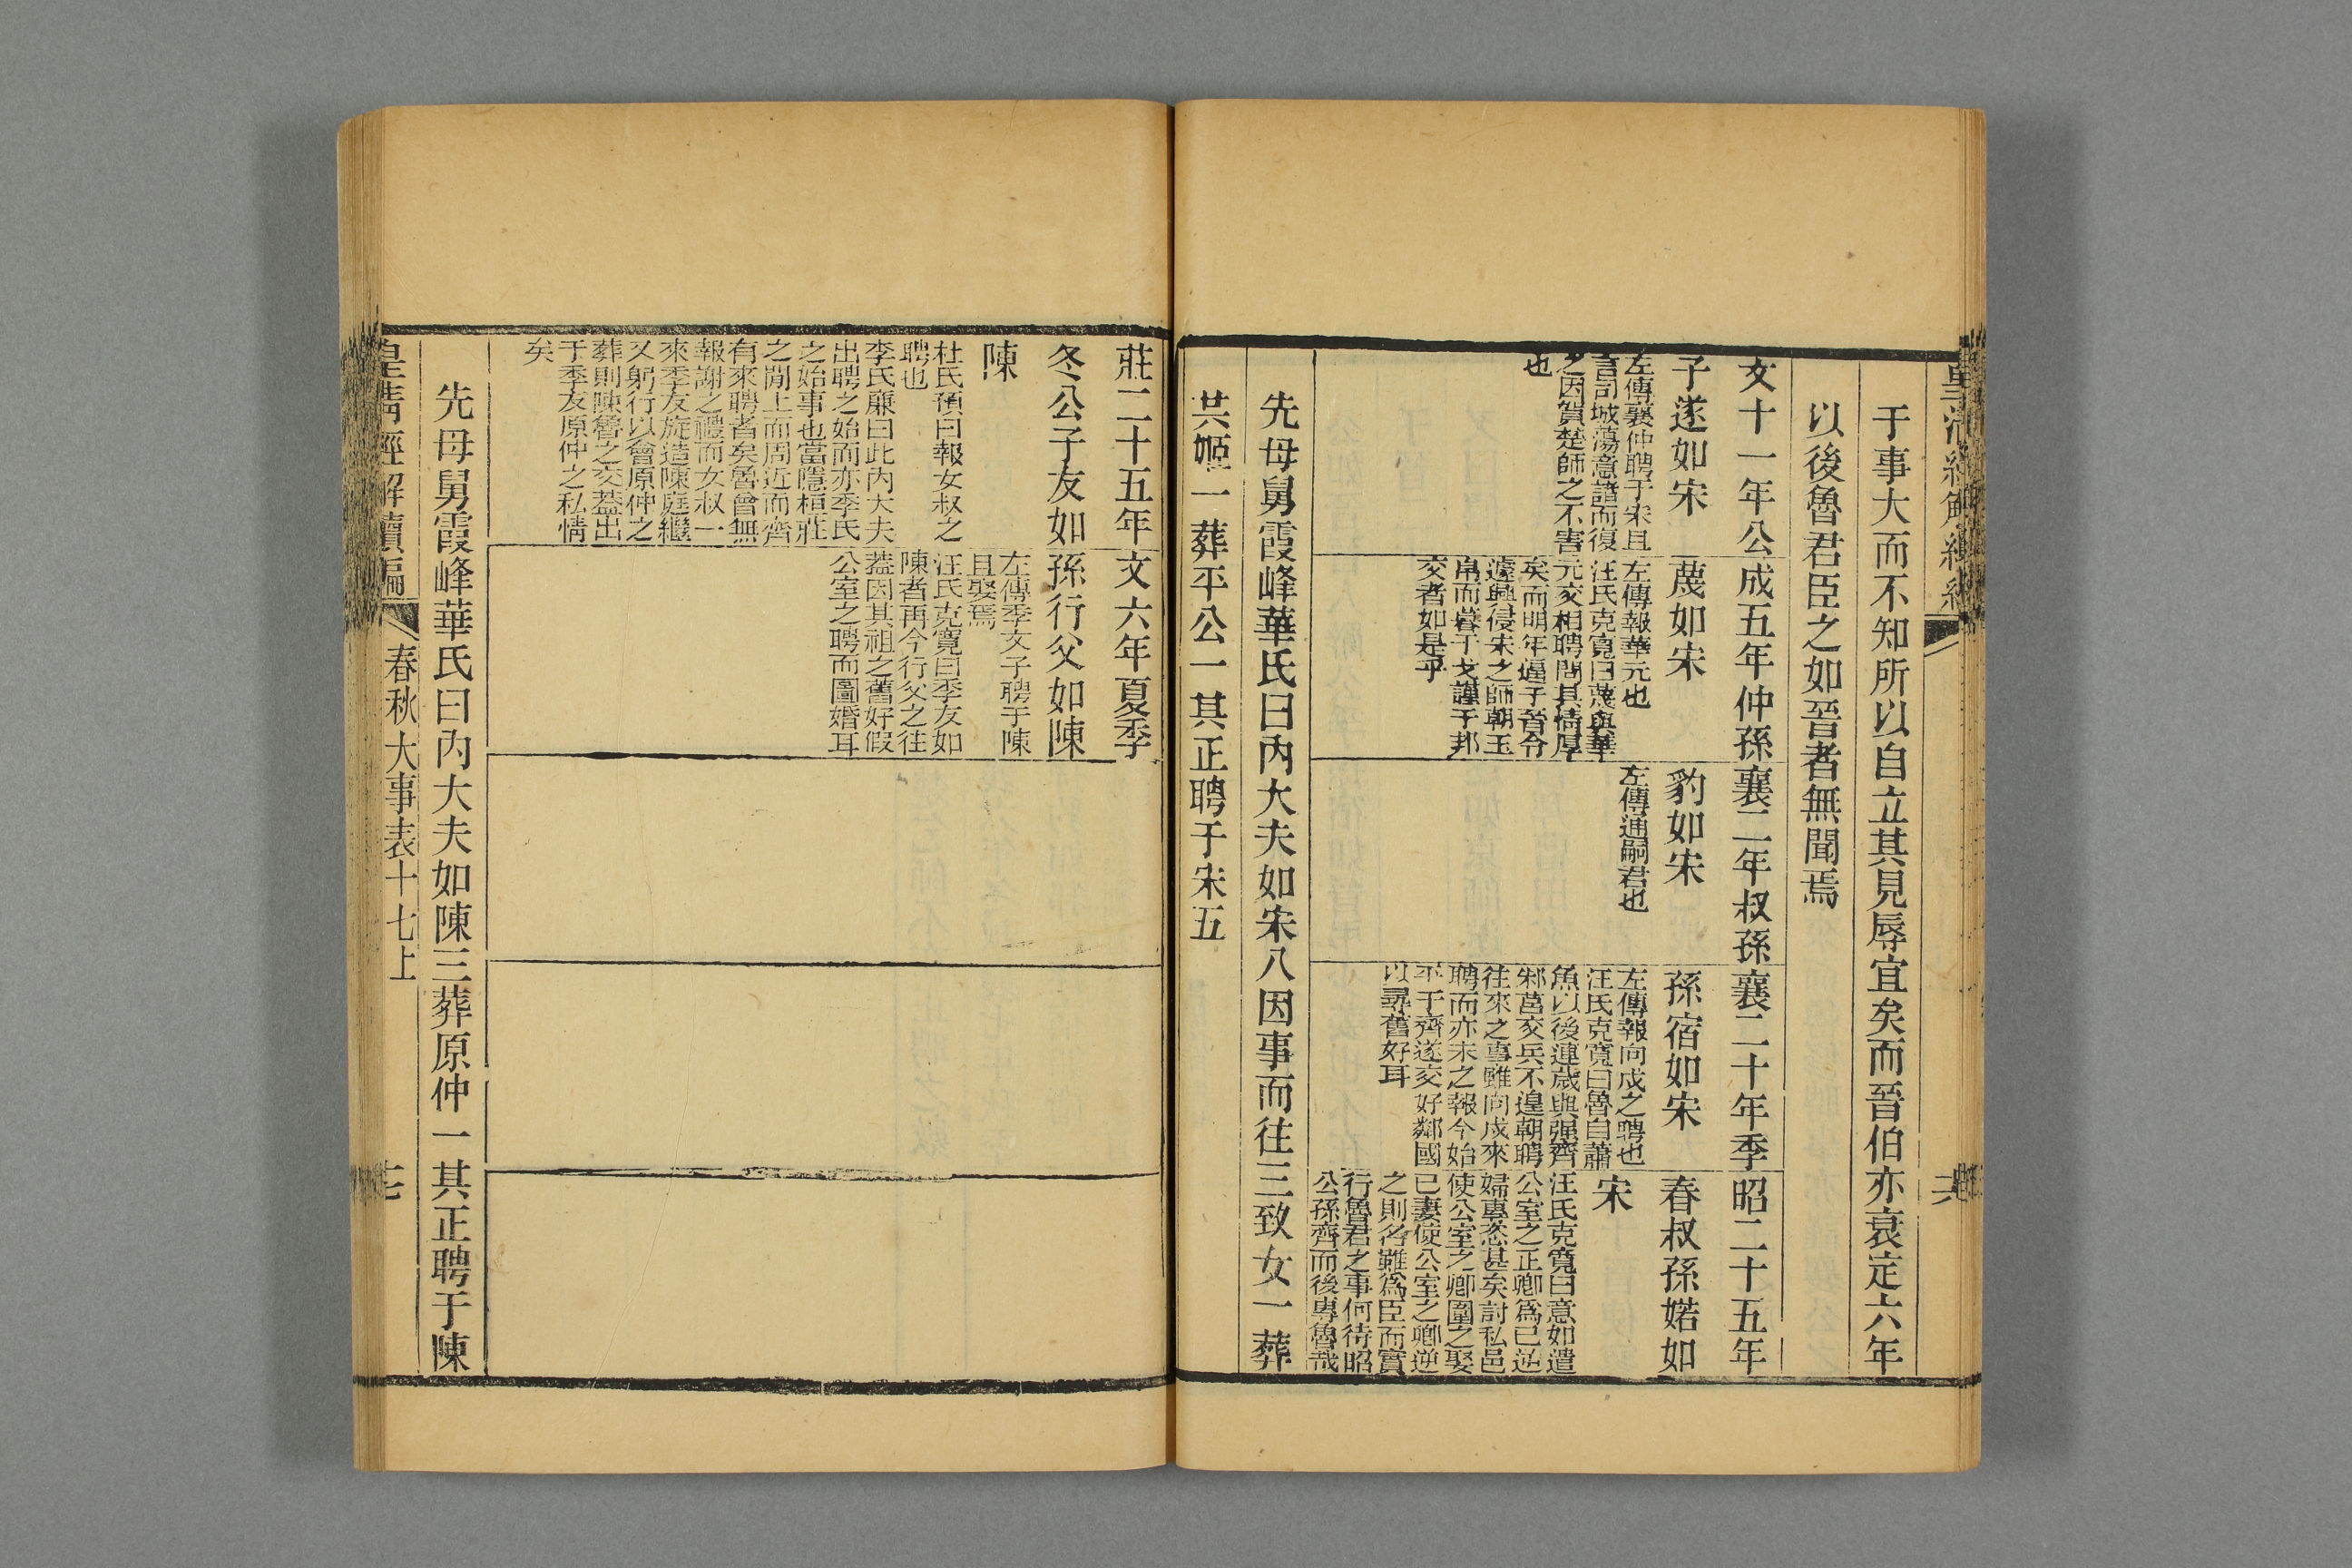 于事大而不知所以自立其見辱宜矣而晉伯亦衰定六年
以後魯君臣之如晉者無聞焉
文十一年公
子遂如宋
左傳襄仲聘于宋且
言司城蕩意諸而復
之因賀楚師之不害
也
成五年仲孫
蔑如宋
左傳報華元也
汪氏克寬曰蔑與華
元交相聘問其情厚
矣而明年逼于晉令
遽興侵宋之師朝玉
帛而暮干戈謹于邦
交者如是乎
襄二年叔孫
豹如宋
左傳通嗣君也
襄二十年季
孫宿如宋
左傳報向戌之聘也
汪氏克寬曰魯自蕭
魚以後連歲與彊齊
邾莒交兵不遑朝聘
往來之事雖向戌來
聘而亦未之報今始
平于齊遂交好鄰國
以尋舊好耳
昭二十五年
春叔孫婼如
宋
汪氏克寬曰意如遣
公室之正卿爲已逆
婦專恣甚矣討私邑
使公室之卿圍之娶
已妻使公室之卿逆
之則名雖爲臣而實
行魯君之事何待昭
公孫齊而後專魯哉
先母舅霞峰華氏曰內大夫如宋八因事而往三致女一葬
共姬一葬平公一其正聘于宋五
莊二十五年
冬公子友如
陳
杜氏預曰報女叔之
聘也
李氏廉曰此內大夫
出聘之始而亦季氏
之始事也當隱桓莊
之閒上而周近而齊
有來聘者矣魯曾無
報謝之禮而女叔一
來季友旋造陳庭繼
又躬行以會原仲之
葬則陳魯之交蓋出
于季友原仲之私情
矣
文六年夏季
孫行父如陳
左傳季文子聘于陳
且娶焉
汪氏克寬曰季友如
陳者再今行父之往
蓋因其祖之舊好假
公室之聘而圖婚耳
先母舅霞峰華氏曰內大夫如陳三葬原仲一其正聘于陳
皇清經解續編
春秋大事表十七上